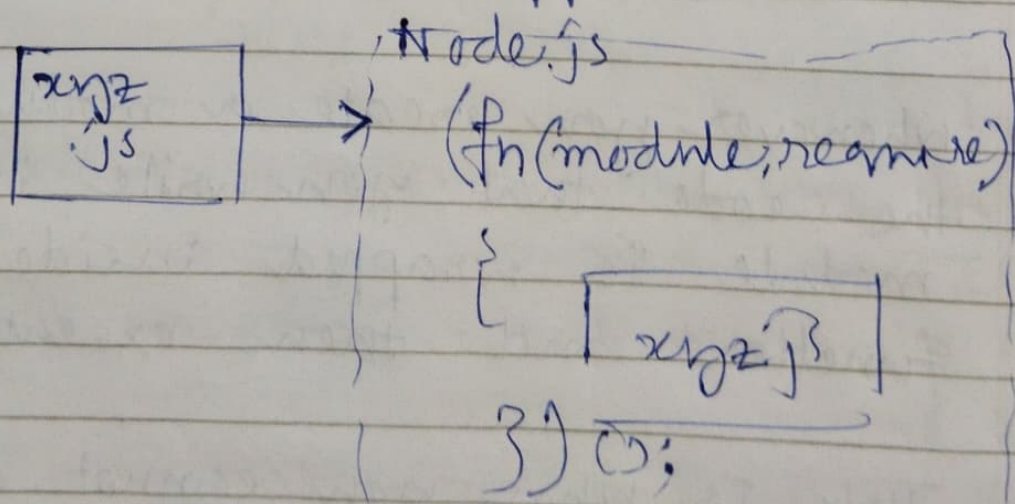 xyz
.js
Node.js
(fn(module, require)
{
xyzjs
})();